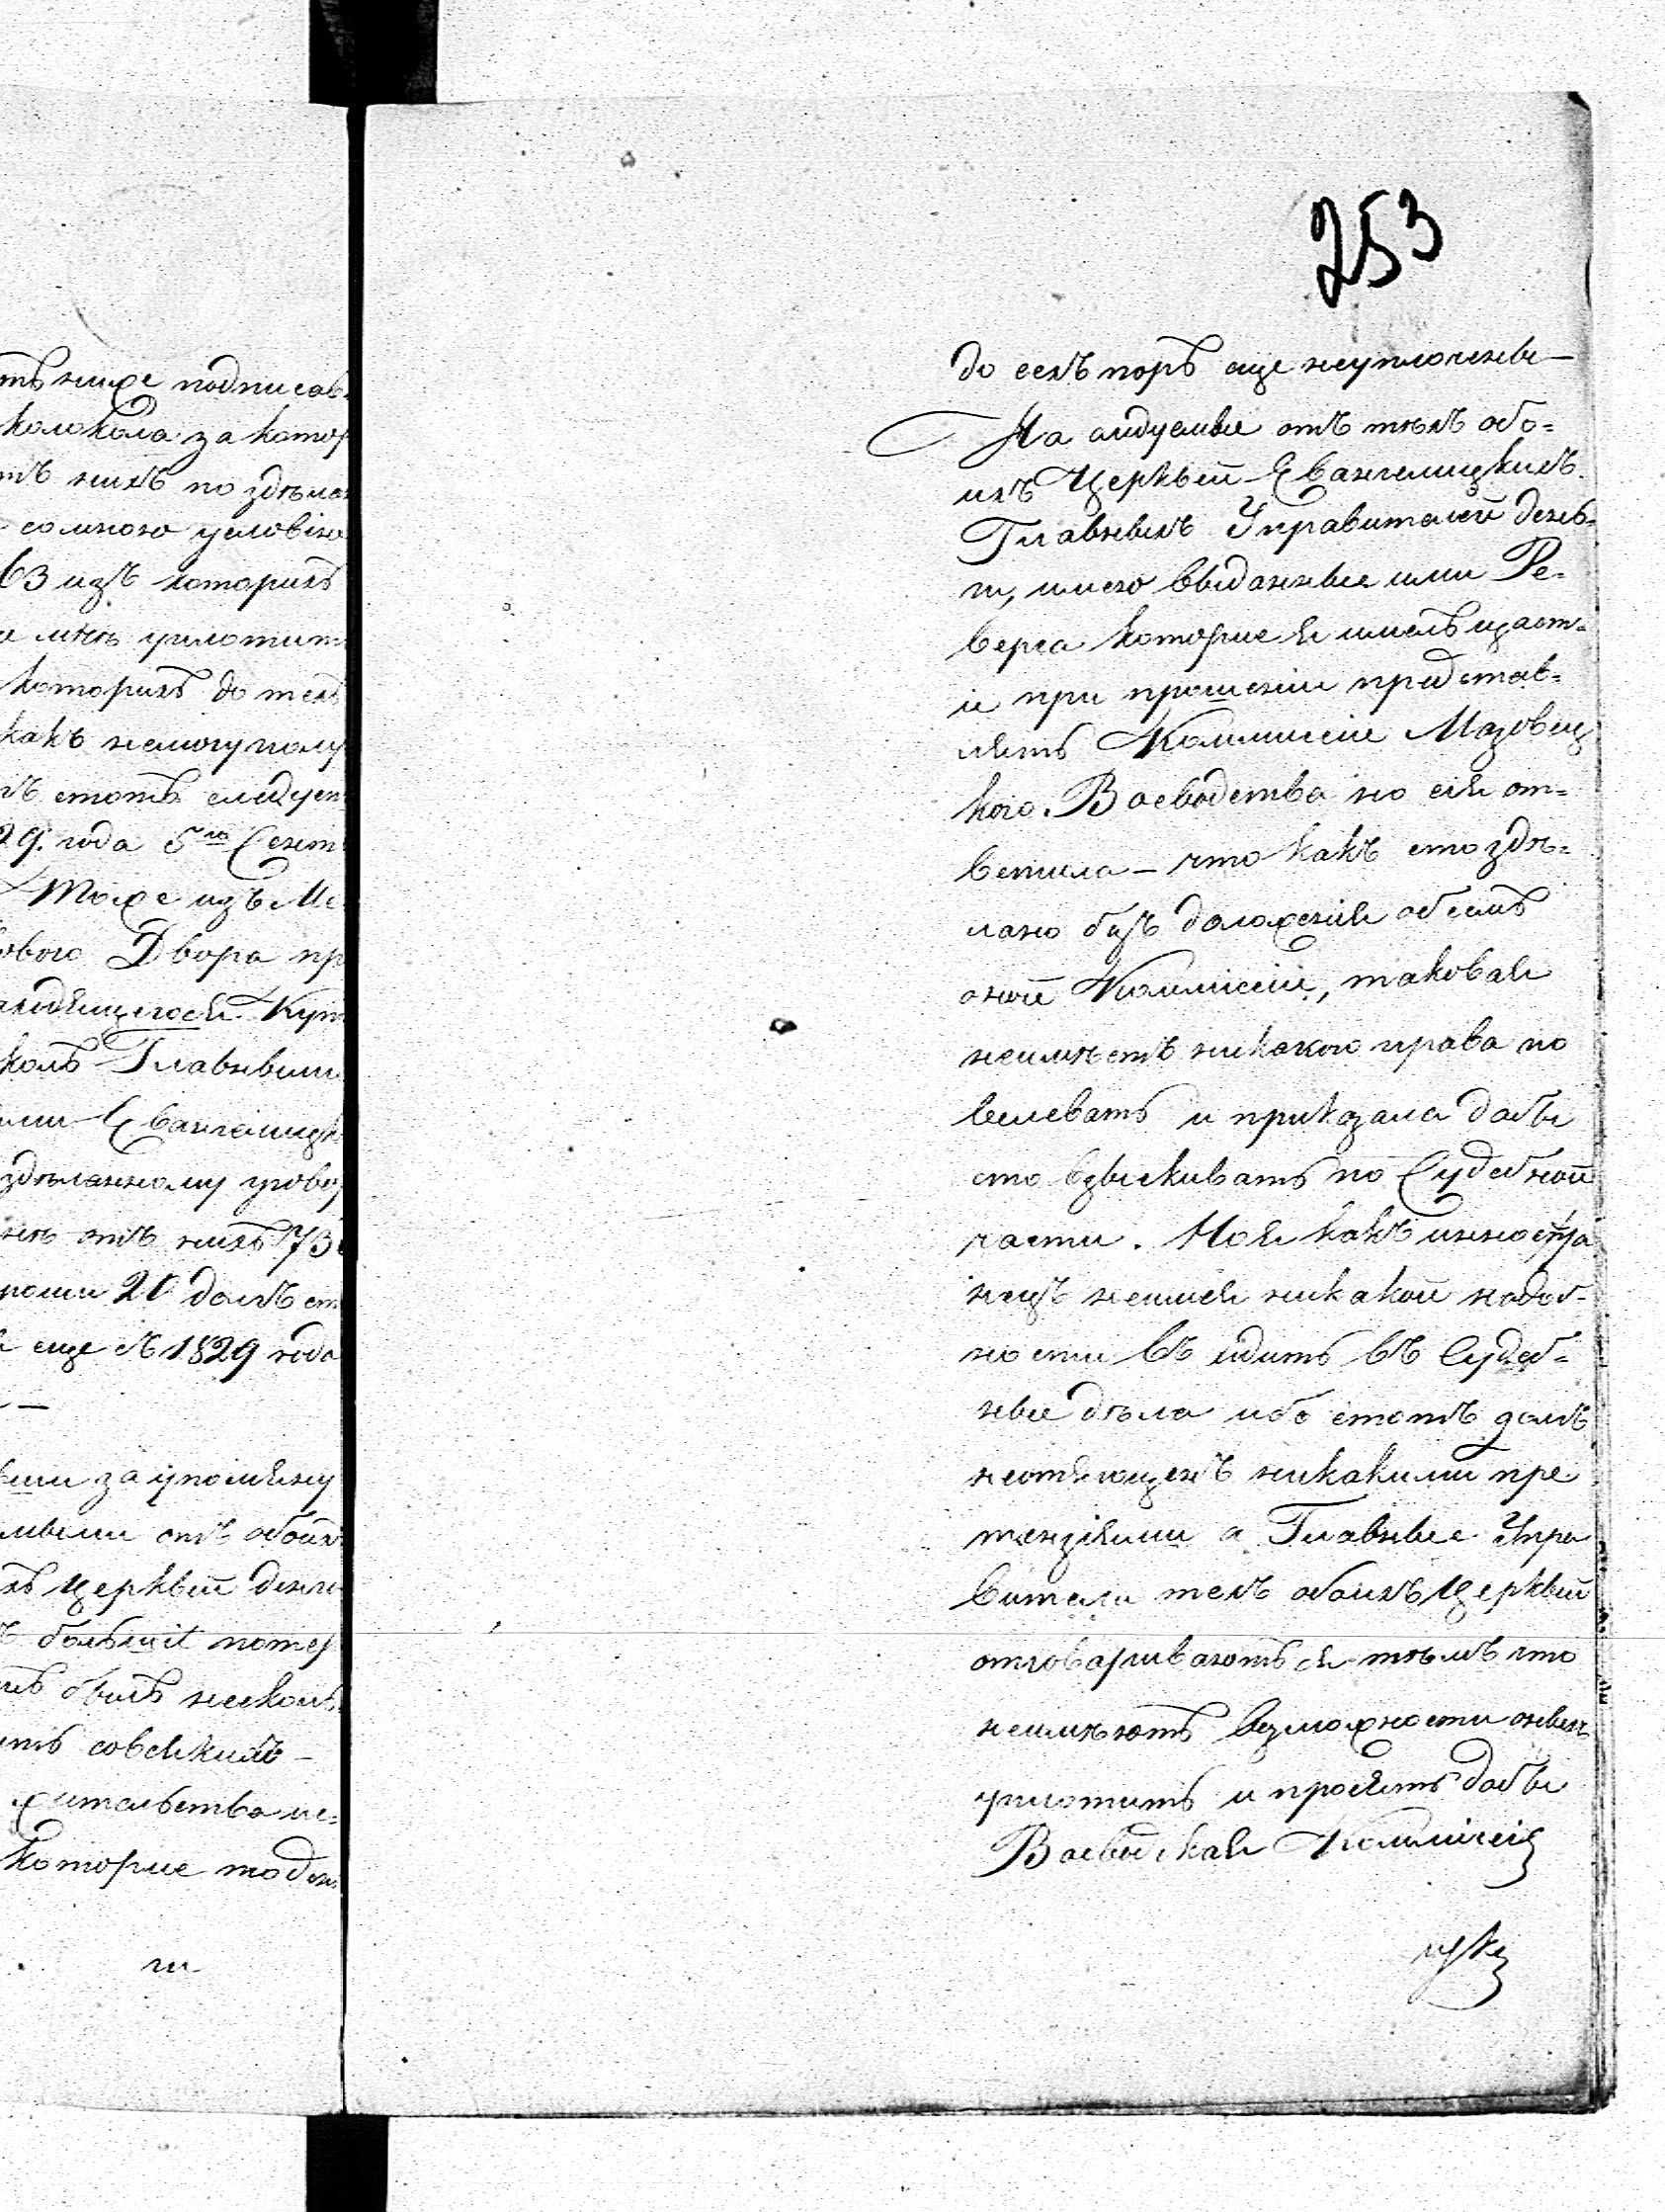 тъ ниже подписав
колокола за котор
тъ нихъ по здѣла
со мною условію
63 изъ которихъ
мнѣ уплотит
которихъ до техъ
какъ немогу полу
етотъ следуе
29. года 5го Сент
Тоже изъ Мс
ового Двора пр
аходящегося Куп
колъ Главными
ами Евангелицк
здѣланному угово
отъ нихъ 73
20 домъ
еще съ 1829 года
—
за упомяну
отъ обоих
хъ Церквей денг
большiй потер
былъ несколь
совсякимъ —
жительства
которие тоден
ги
253
до сехъ поръ еще неуплочены —
На следуемые отъ тѣхъ обо=
ихъ Церквей Евангелицкихъ
Главныхъ Управителей день=
ги, имею выданные ими Ре=
верса которие я имелъ щаст=
и при прошеніи представ=
лять Коммисіи Мазовец
кого Воеводства но сія от=
ветила — что какъ ето здѣ=
лано безъ доложенія обетъ
оной Коммісіи, таковая
неимѣетъ никакого права по
велевать и приказала дабы
ето взыскивать по Судебной
части. Но я какъ инностра
нецъ неимея никакой надоб=
ности въ идить въ Судеб=
ные дѣла ибо етотъ домъ
неотягощенъ никакими пре
тензіями а Главные Упра
вители техъ обоихъ Церквей
отговариваютъся тѣмъ что
неимѣютъ возможности оныхъ
уплотить и просятъ дабы
Воеводская Коммісія